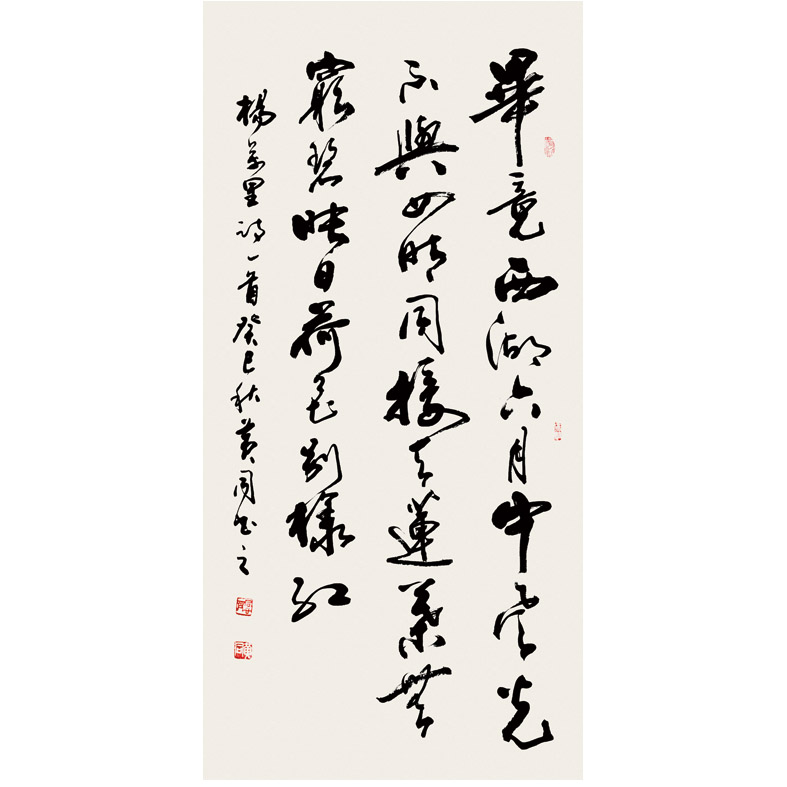 畢竟西湖六月中風光
不與四時同接天蓮葉無
窮碧映日荷花別樣紅
楊萬里詩一首癸巳秋黃同書之